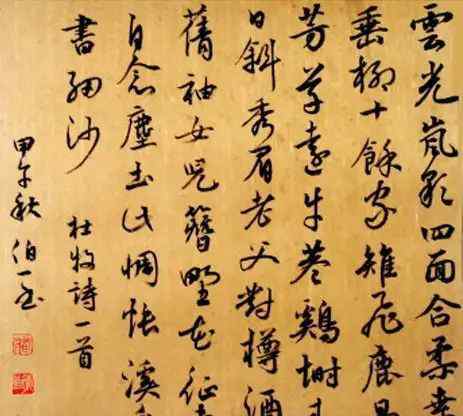 雲光嵐彩四面合柔
垂柳十餘家雉飛鹿
芳草遠牛巷雞塒
日斜秀眉老父對樽酒
蒨袖女兒簪野花征
自念塵土計惆悵溪
書細沙 杜牧詩一首
甲午秋 伯